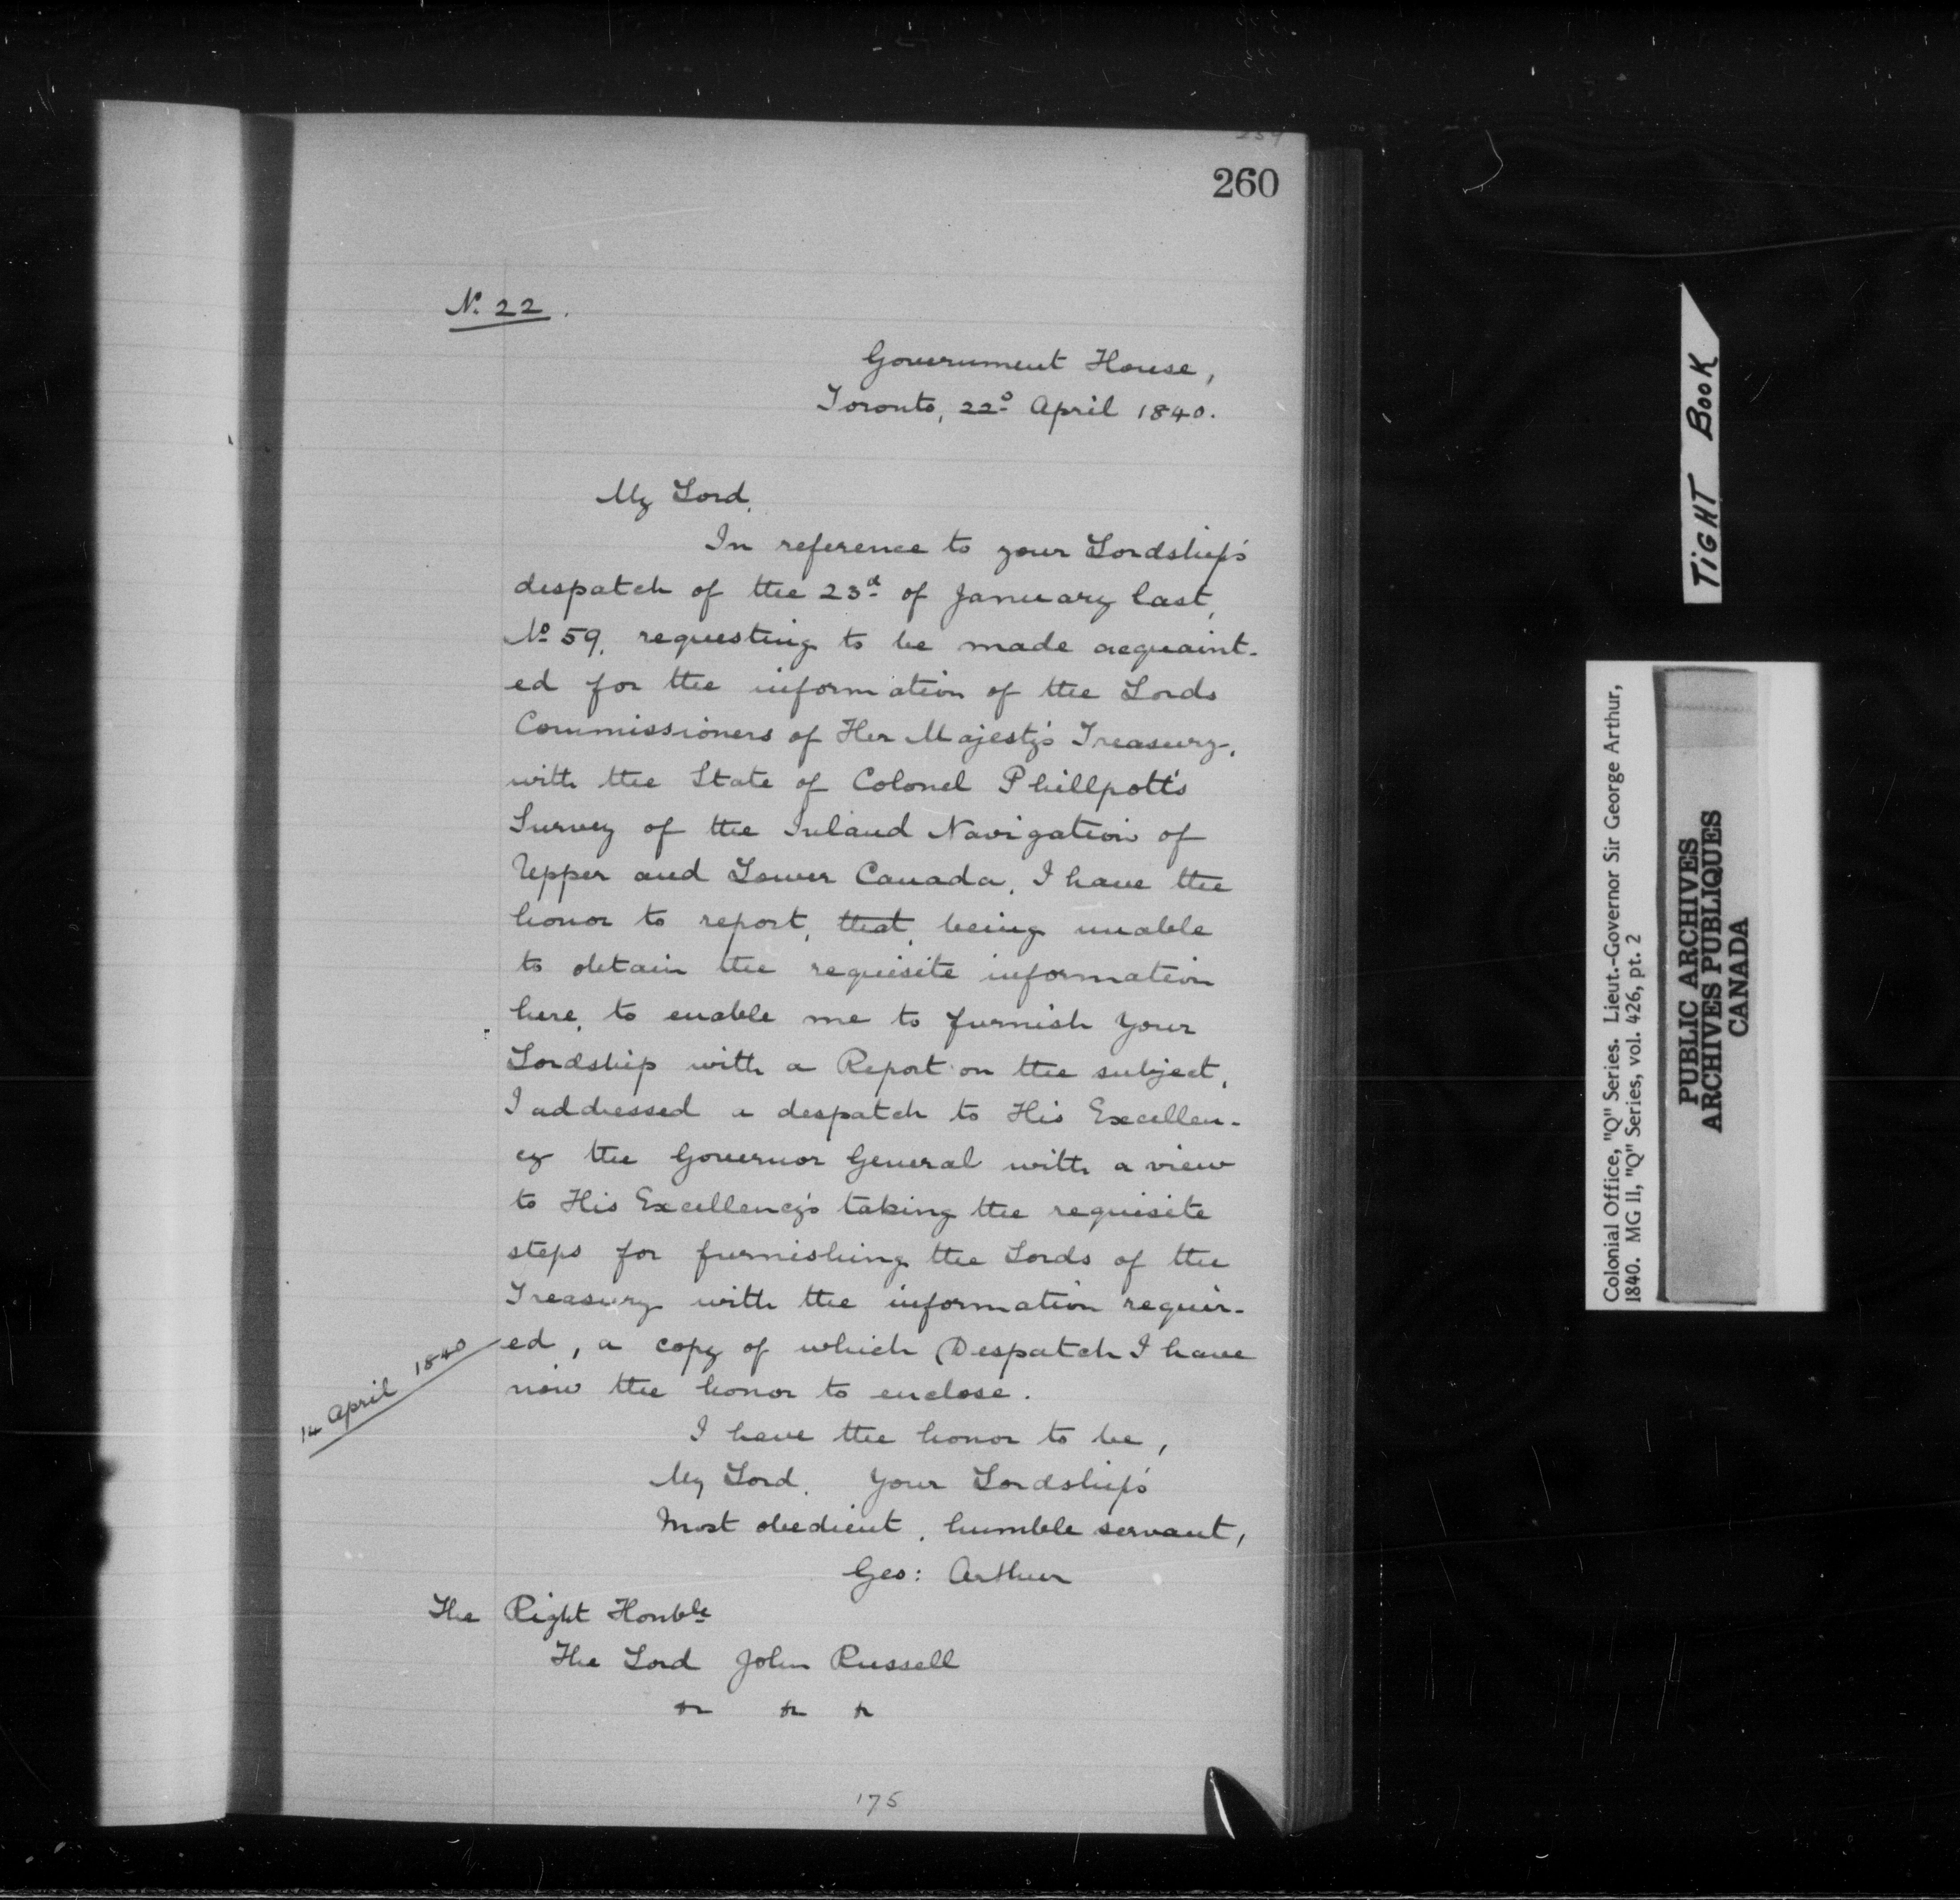 260
No. 22.
Government House,
Toronto, 22d April 1840.
My Lord,
In reference to your Lordship's
despatch of the 23d of January last,
No 59, requesting to be made acquaint-
ed for the information of the Lords
Commissioners of Her Majesty's Treasury,
with the State of Colonel Phillpott's
Survey of the Inland Navigation of
Upper and Lower Canada, I have the
honor to report, that, being unable
to obtain the requisite information
here, to enable me to furnish your
Lordship with a Report on the subject,
I addressed a despatch to His Excellen-
cy the Governor General with a view
to His Excellency's taking the requisite
steps for furnishing the Lords of the
Treasury with the information requir-
ed, a copy of which Despatch I have
now the honor to enclose.
14 April 1840
I have the honor to be,
My Lord, Your Lordship's
Most obedient, humble servant,
Geo: Arthur
The Right Honble
The Lord John Russell
175
TIGHT BOOK
Colonial Office, "Q" Series. Lieut.-Governor Sir George Arthur,
1840. MG 11, "Q" Series, vol. 426, pt. 2
PUBLIC ARCHIVES
ARCHIVES PUBLIQUES
CANADA